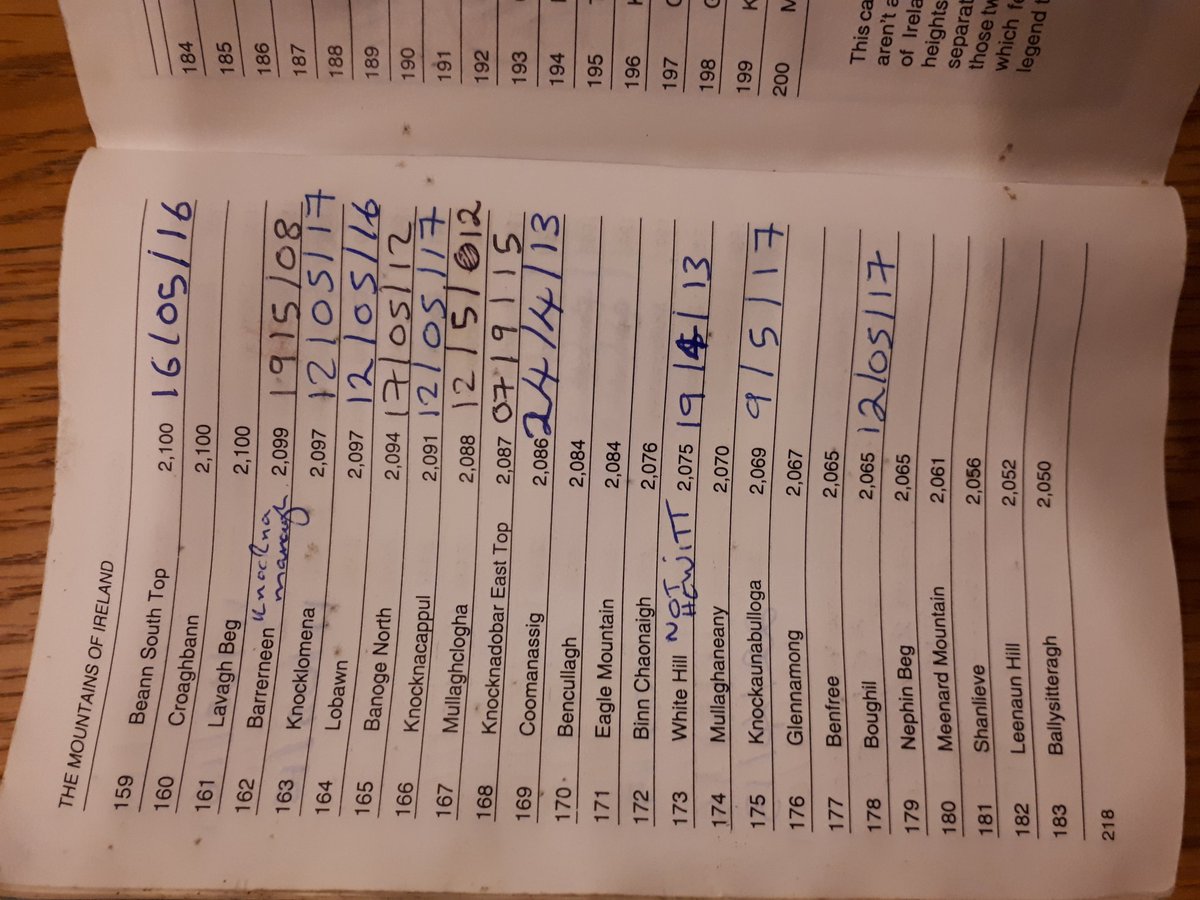 THE MOUNTAINS OF IRELAND
159 Beann South Top 2,100 16/05/16
160 Croaghbann 2,100
161 Lavagh Beg 2,100
162 Barrerneen Knockna managh 2,099 19/5/08
163 Knocklomena 2,097 12/05/17
164 Lobawn 2,097 12/05/16
165 Banoge North 2,094 17/05/12
166 Knocknacappul 2,091 12/05/17
167 Mullaghclogha 2,088 12/5/12
168 Knocknadobar East Top 2,087 07/9/15
169 Coomanassig 2,086 24/4/13
170 Bencullagh 2,084
171 Eagle Mountain 2,084
172 Binn Chaonaigh 2,076
173 White Hill NOT HOWITT 2,075 19/4/13
174 Mullaghaneany 2,070
175 Knockaunabulloga 2,069 9/5/17
176 Glennamong 2,067
177 Benfree 2,065
178 Boughil 2,065 12/05/17
179 Nephin Beg 2,065
180 Meenard Mountain 2,061
181 Shanlieve 2,056
182 Leenaun Hill 2,052
183 Ballysitteragh 2,050
218
184
185
186
187
188
189
190
191
192
193
194
195
196
197
198
199
200
This
aren't
of
heights
those
which
legend